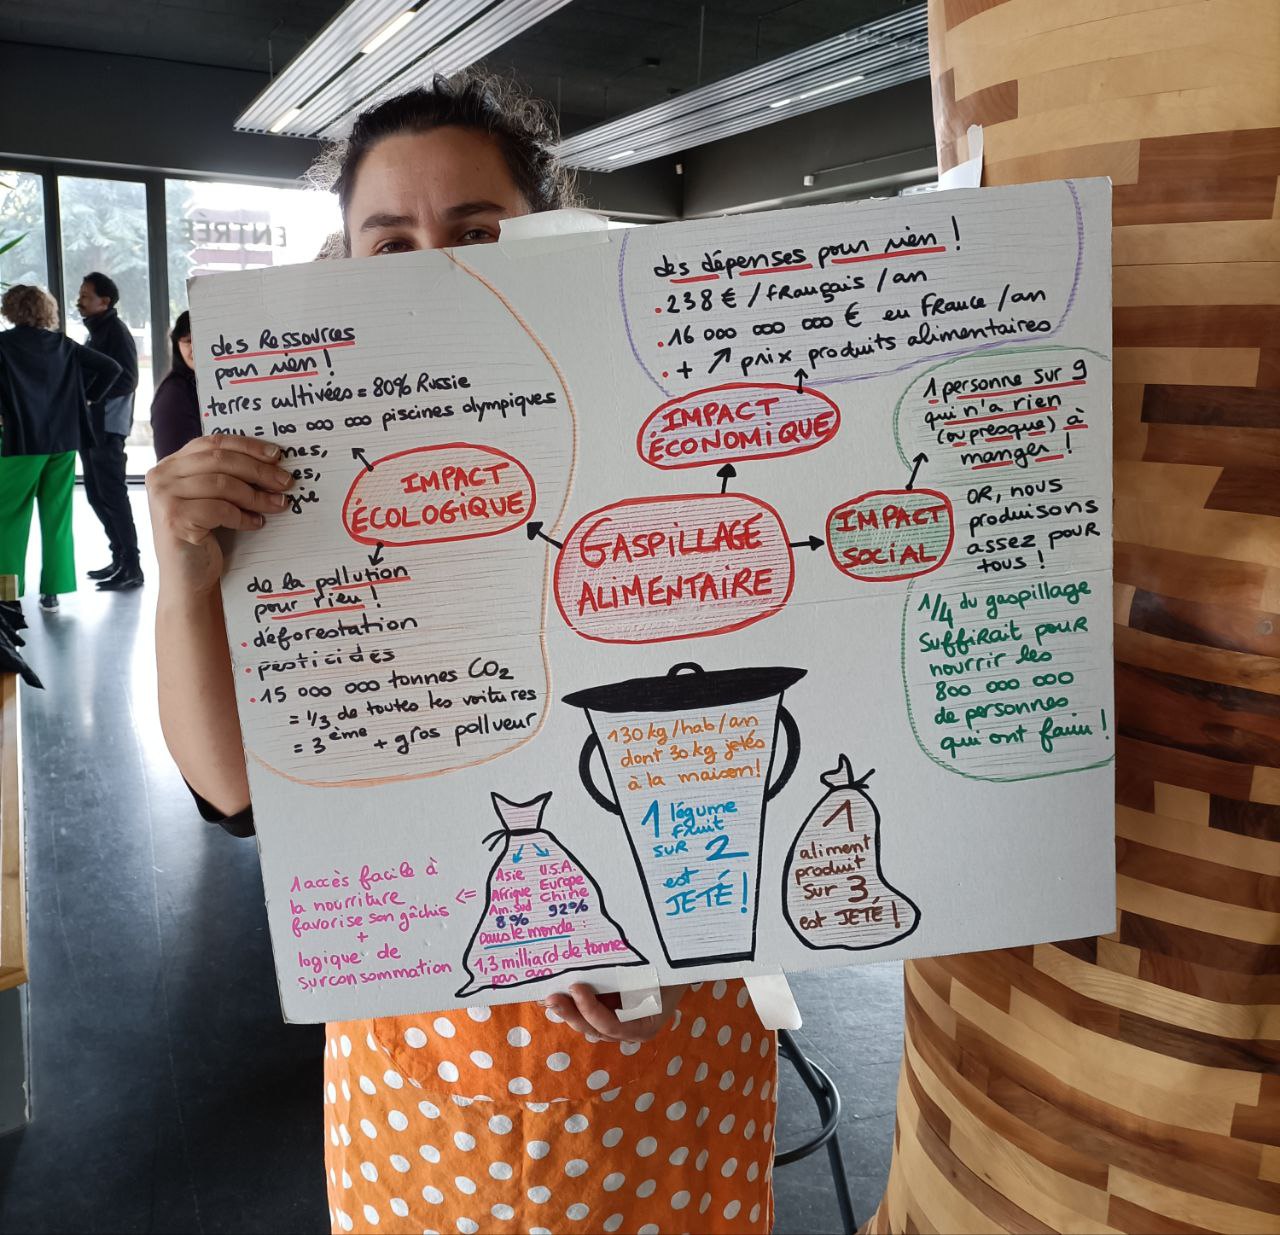 ENTRÉE
des Ressources
pour rien !
. terres cultivées = 80% Russie
eau = 100 000 000 piscines olympiques
IMPACT
ÉCOLOGIQUE
de la pollution
pour rien !
. déforestation
. pesticides
. 15 000 000 tonnes CO2
= 1/3 de toutes les voitures
= 3ème + gros pollueur
des dépenses pour rien !
. 238 € / français / an
. 16 000 000 000 € en France / an
. + ↗ prix produits alimentaires
IMPACT
ÉCONOMIQUE
GASPILLAGE
ALIMENTAIRE
IMPACT
SOCIAL
1 personne sur 9
qui n'a rien
(ou presque) à
manger !
OR, nous
produisons
assez pour
tous !
1/4 du gaspillage
suffirait pour
nourrir les
800 000 000
de personnes
qui ont faim !
130 kg/hab/an
dont 30 kg jetés
à la maison !
1 légume
fruit
sur 2
est
JETÉ !
1
aliment
produit
sur 3
est JETÉ !
Asie
Afrique
Am. Sud
8%
U.S.A.
Europe
Chine
92%
Dans le monde :
1,3 milliard de tonnes
par an
<=
1 accès facile à
la nourriture
favorise son gâchis
+
logique de
surconsommation